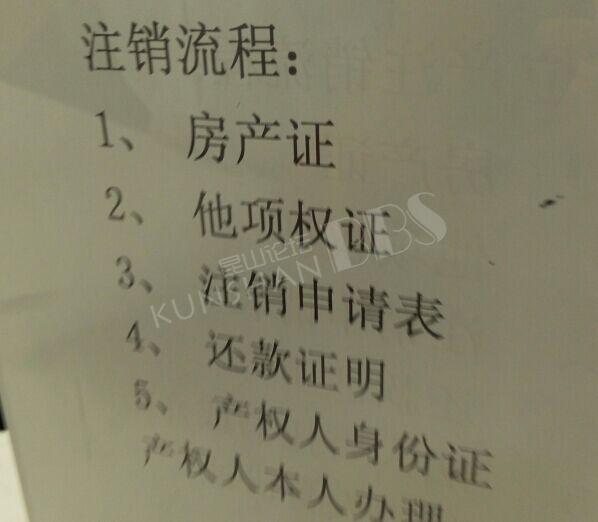 注销流程：
1、 房产证
2、 他项权证
3、 注销申请表
4、 还款证明
5、 产权人身份证
产权人本人办理
昆山论坛
KUNSHAN BBS